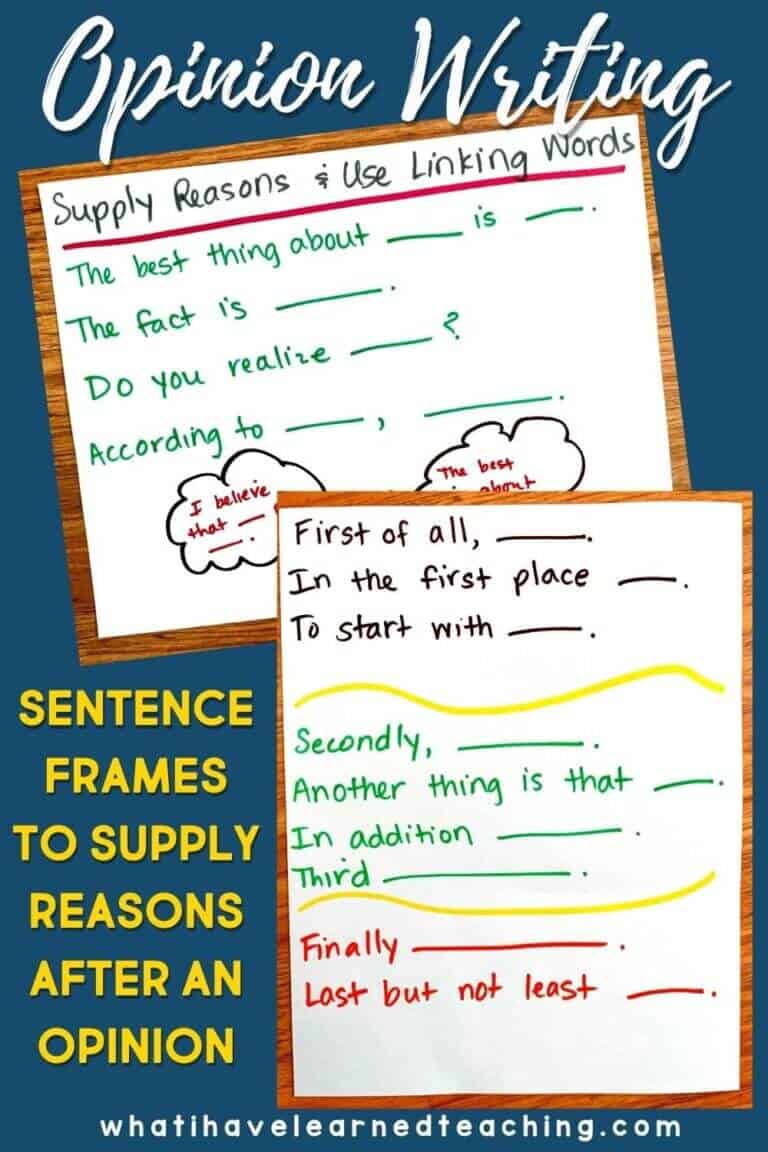 Opinion Writing
Supply Reasons & Use Linking Words
The best thing about ____ is ____.
The fact is ____.
Do you realize ____?
According to ____, ____.
I believe
that ____
____.
The best
about
First of all, ____.
In the first place ____.
To start with ____.
Secondly, ____.
Another thing is that ____.
In addition ____.
Third ____.
Finally ____.
Last but not least ____.
SENTENCE
FRAMES
TO SUPPLY
REASONS
AFTER AN
OPINION
whatihavelearnedteaching.com